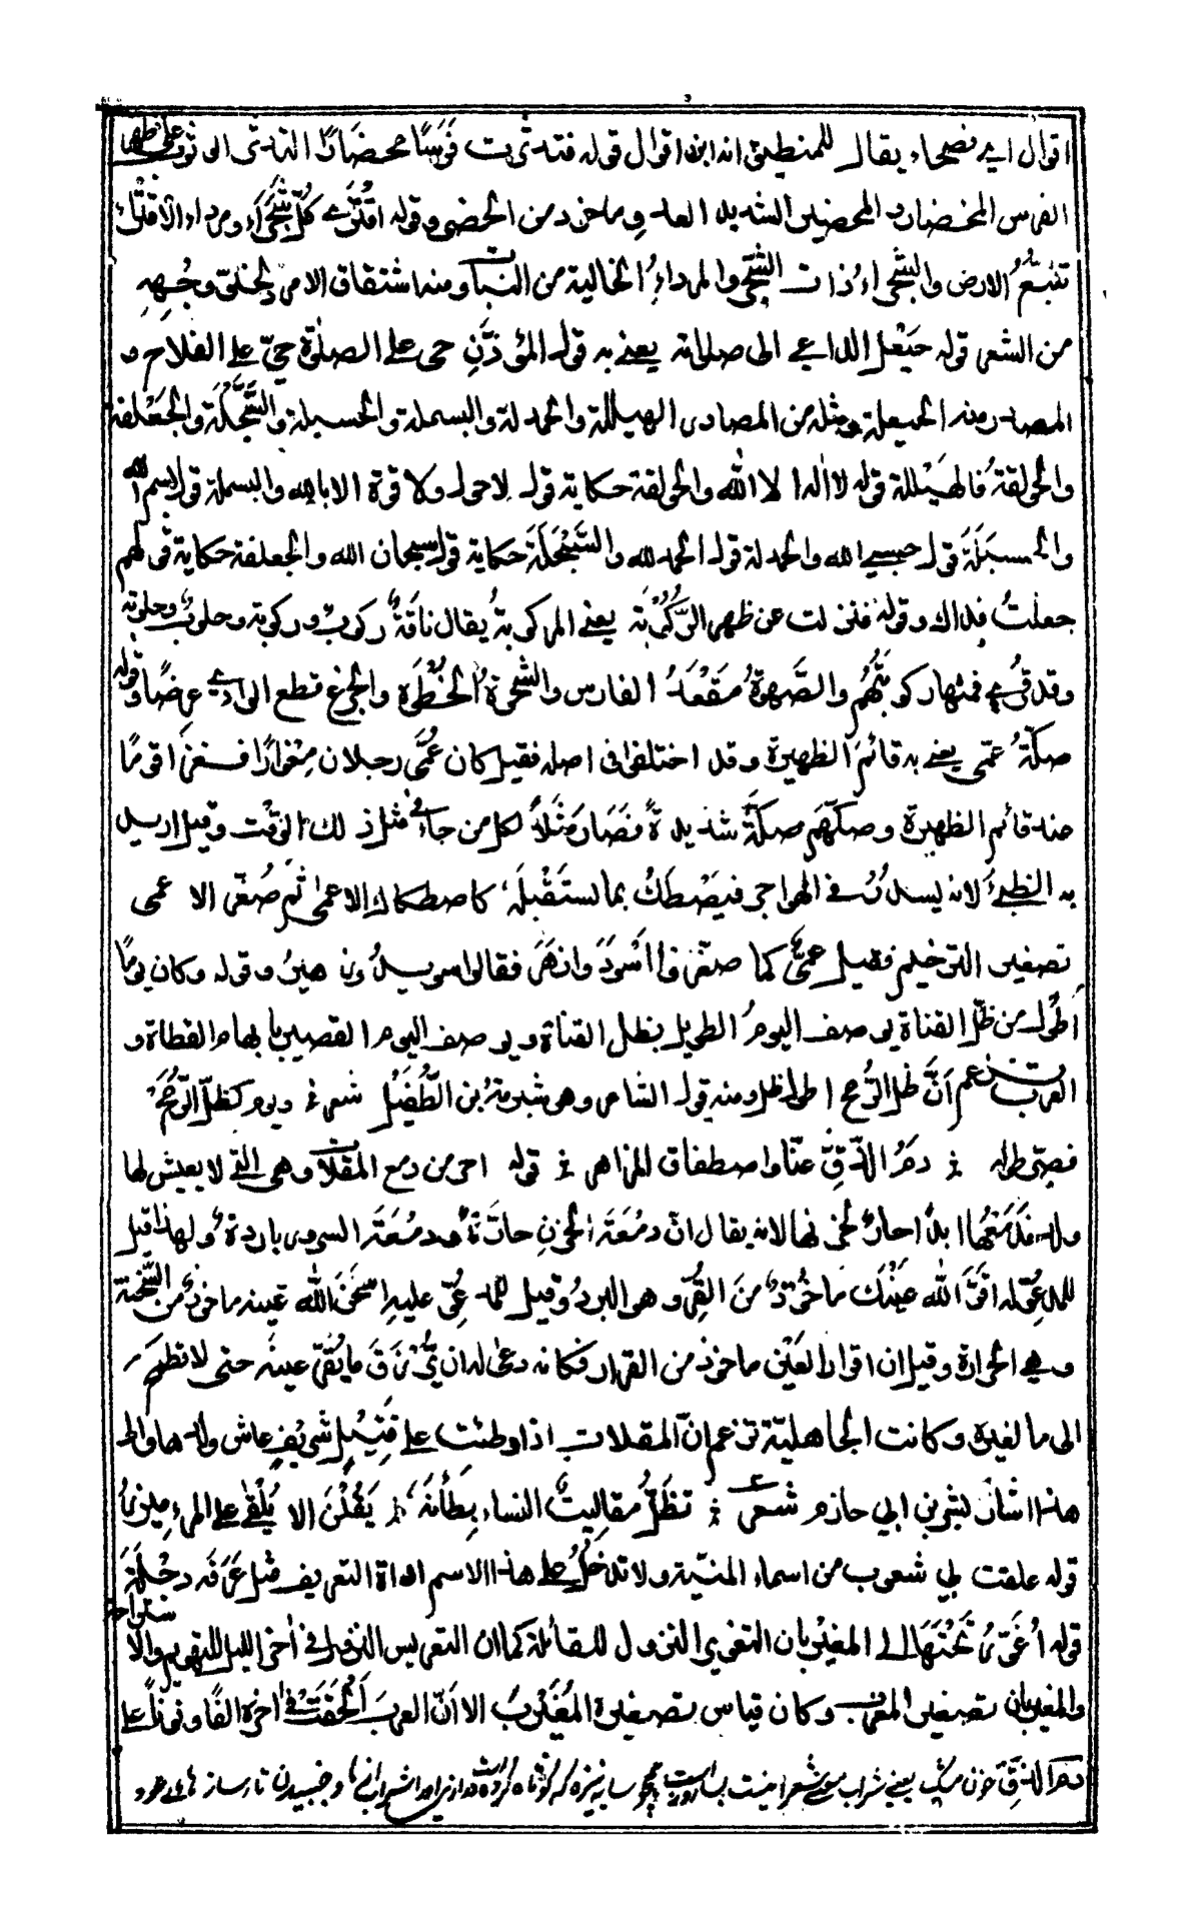 اقوال اي فصحاء يقال للمنطيق انه ابن اقوال قوله فتدثرت فرسا محضارا التدثر الوثوب على ظهر
الفرس المحضار والمحضير الشديد العدو ماخوذ من الحضر وقوله اقتري كل شجراء ومرداء الاقتراء
تتبع الارض والشجراء ذات الشجر والمرداء الخالية من النبات ومنه اشتقاق الامرد لخلو وجهه
من الشعر قوله حيعل الداعي الى صلاته يعني به قول المؤذن حي على الصلوة حي على الفلاح و
المصدر منه الحيعلة ومثله من المصادر الهيللة والحمدلة والبسملة والحسبلة والسبحلة والجعلفة
والحولقة فالهيللة قوله لا اله الا الله والحولقة حكاية قول لا حول ولا قوة الا بالله والبسملة قول بسم الله
والحسبلة قول حسبي الله والحمدلة قول الحمد لله والسبحلة حكاية قول سبحان الله والجعلفة حكاية قولهم
جعلت فداك وقوله فنزلت عن ظهر الركوبة يعني المركوبة يقال ناقة ركوب وركوبة وحلوب وحلوبة
وقد قرئ فمنها ركوبتهم والصهوة مقعد الفارس والشحوة الخطوة والجزع قطع الوادي عرضا وقوله
صكة عمي يعني به قائم الظهيرة وقد اختلفوا في اصله فقيل كان عمي رجلا مغوارا فغزا قوما
عند قائم الظهيرة وصكهم صكة شديدة فصار مثلا لكل من جاء في مثل ذلك الوقت وقيل اريد
به الظبي لانه يسدر في الهواجر فيصطك بما يستقبله كاصطكاك الاعمى ثم صغر الاعمى
تصغير الترخيم فقيل عمي كما صغروا اسود وازهر فقالوا سويد وزهير وقوله وكان يوما
اطول من ظل القناة يوصف اليوم الطويل بظل القناة ويوصف اليوم القصير بابهام القطاة و
العرب تزعم ان ظل الرمح اطول ظل ومنه قول الشاعر وهو شبرمة بن الطفيل شعر ؛ ويوم كظل الرمح
قصر طوله ؛ دم الزق عنا واصطفاق المزاهر ؛ قوله احر من دمع المقلات وهي التي لا يعيش لها
ولد فدمعها ابدا حار لحزنها لانه يقال ان دمعة الحزن حارة ودمعة السرور باردة ولهذا قيل
للمدعو له اقر الله عينك ماخوذ من القر وهو البرد وقيل للمدعو عليه اسخن الله عينه ماخوذ من السخنة
وهي الحرارة وقيل ان اقرار العين ماخوذ من القرار فكانه دعي له ان يرزق ما يقر عينه حتى لا تطمح
الى ما لغيره وكانت الجاهلية تزعم ان المقلات اذا وطئت على قتيل شريف عاش ولدها والى
هذا اشار بشر بن ابي حازم شعر ؛ تظل مقاليت النساء يطأنه ؛ يقلن الا يلقى على المرء ميزر
قوله علقت بي شعوب من اسماء المنية ولا تدخل على هذا الاسم اداة التعريف مثل عرفة ودجلة
قوله اغور تحتها الى المغيربان التغوير النزول للقائلة كما ان التعريس النزول في آخر الليل للتهويم والاستراحة
والمغيربان تصغير المغرب وكان قياس تصغيره المغيرب الا ان العرب الحقت في اخره الفا ونونا على
دم الزق خون مشك يعني شراب